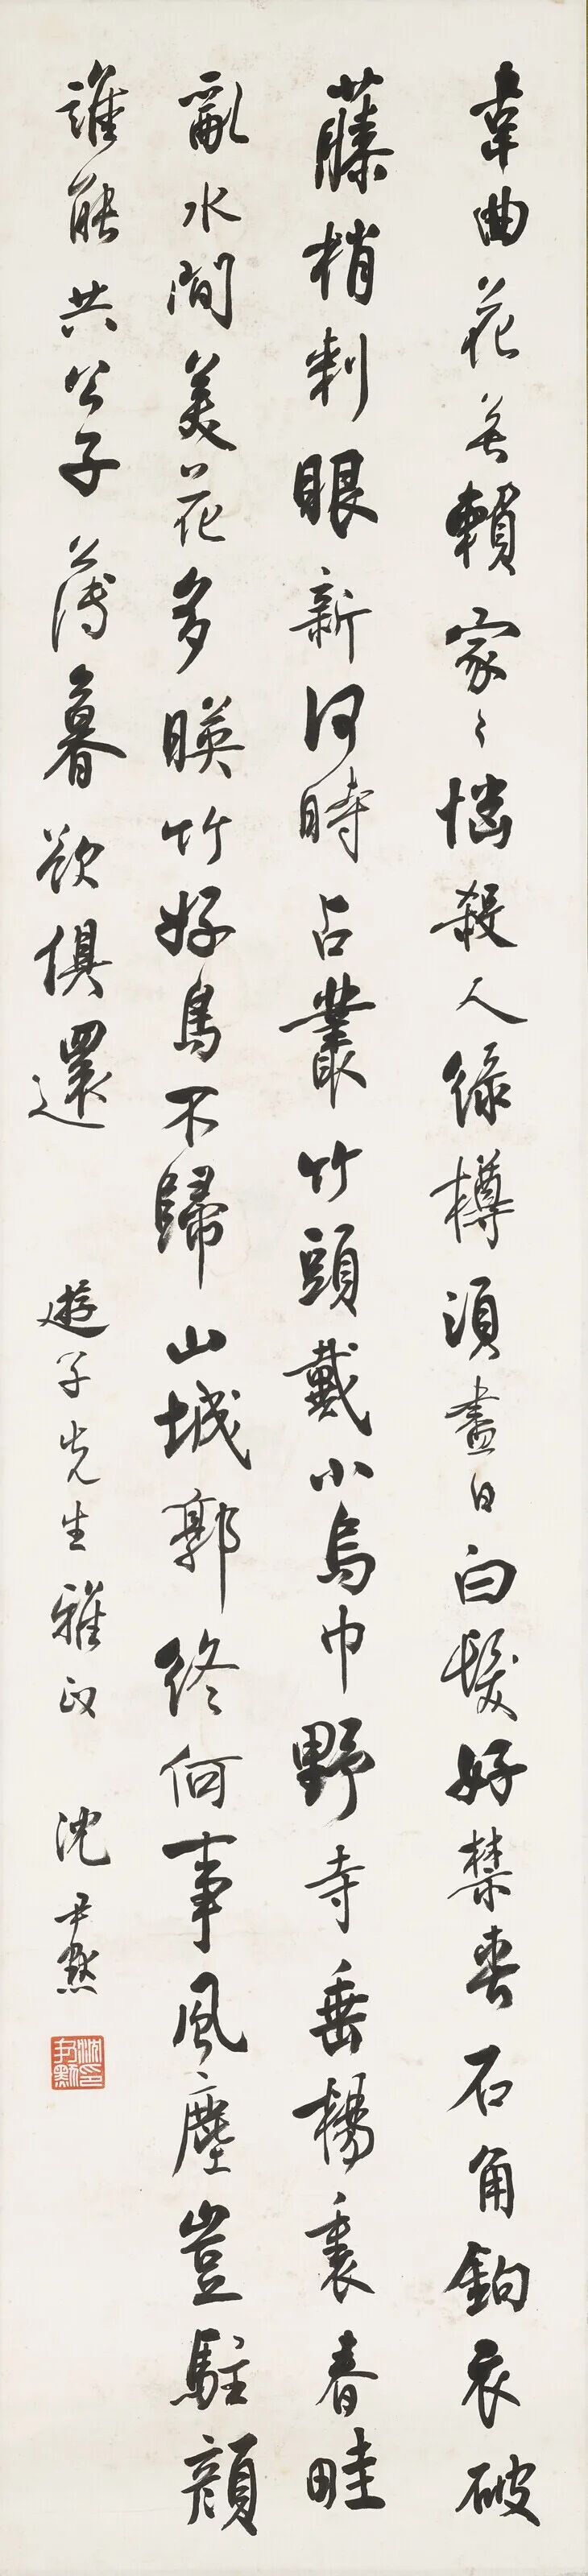 韋曲花無賴家々惱殺人綠樽須盡日白髮好禁春石角鉤衣破
藤梢刺眼新何時占叢竹頭戴小烏巾野寺垂楊裏春畦
亂水間美花多映竹好鳥不歸山城郭終何事風塵豈駐顏
誰能共公子薄暮欲俱還 遊子先生雅政 沈尹默
沈尹默印